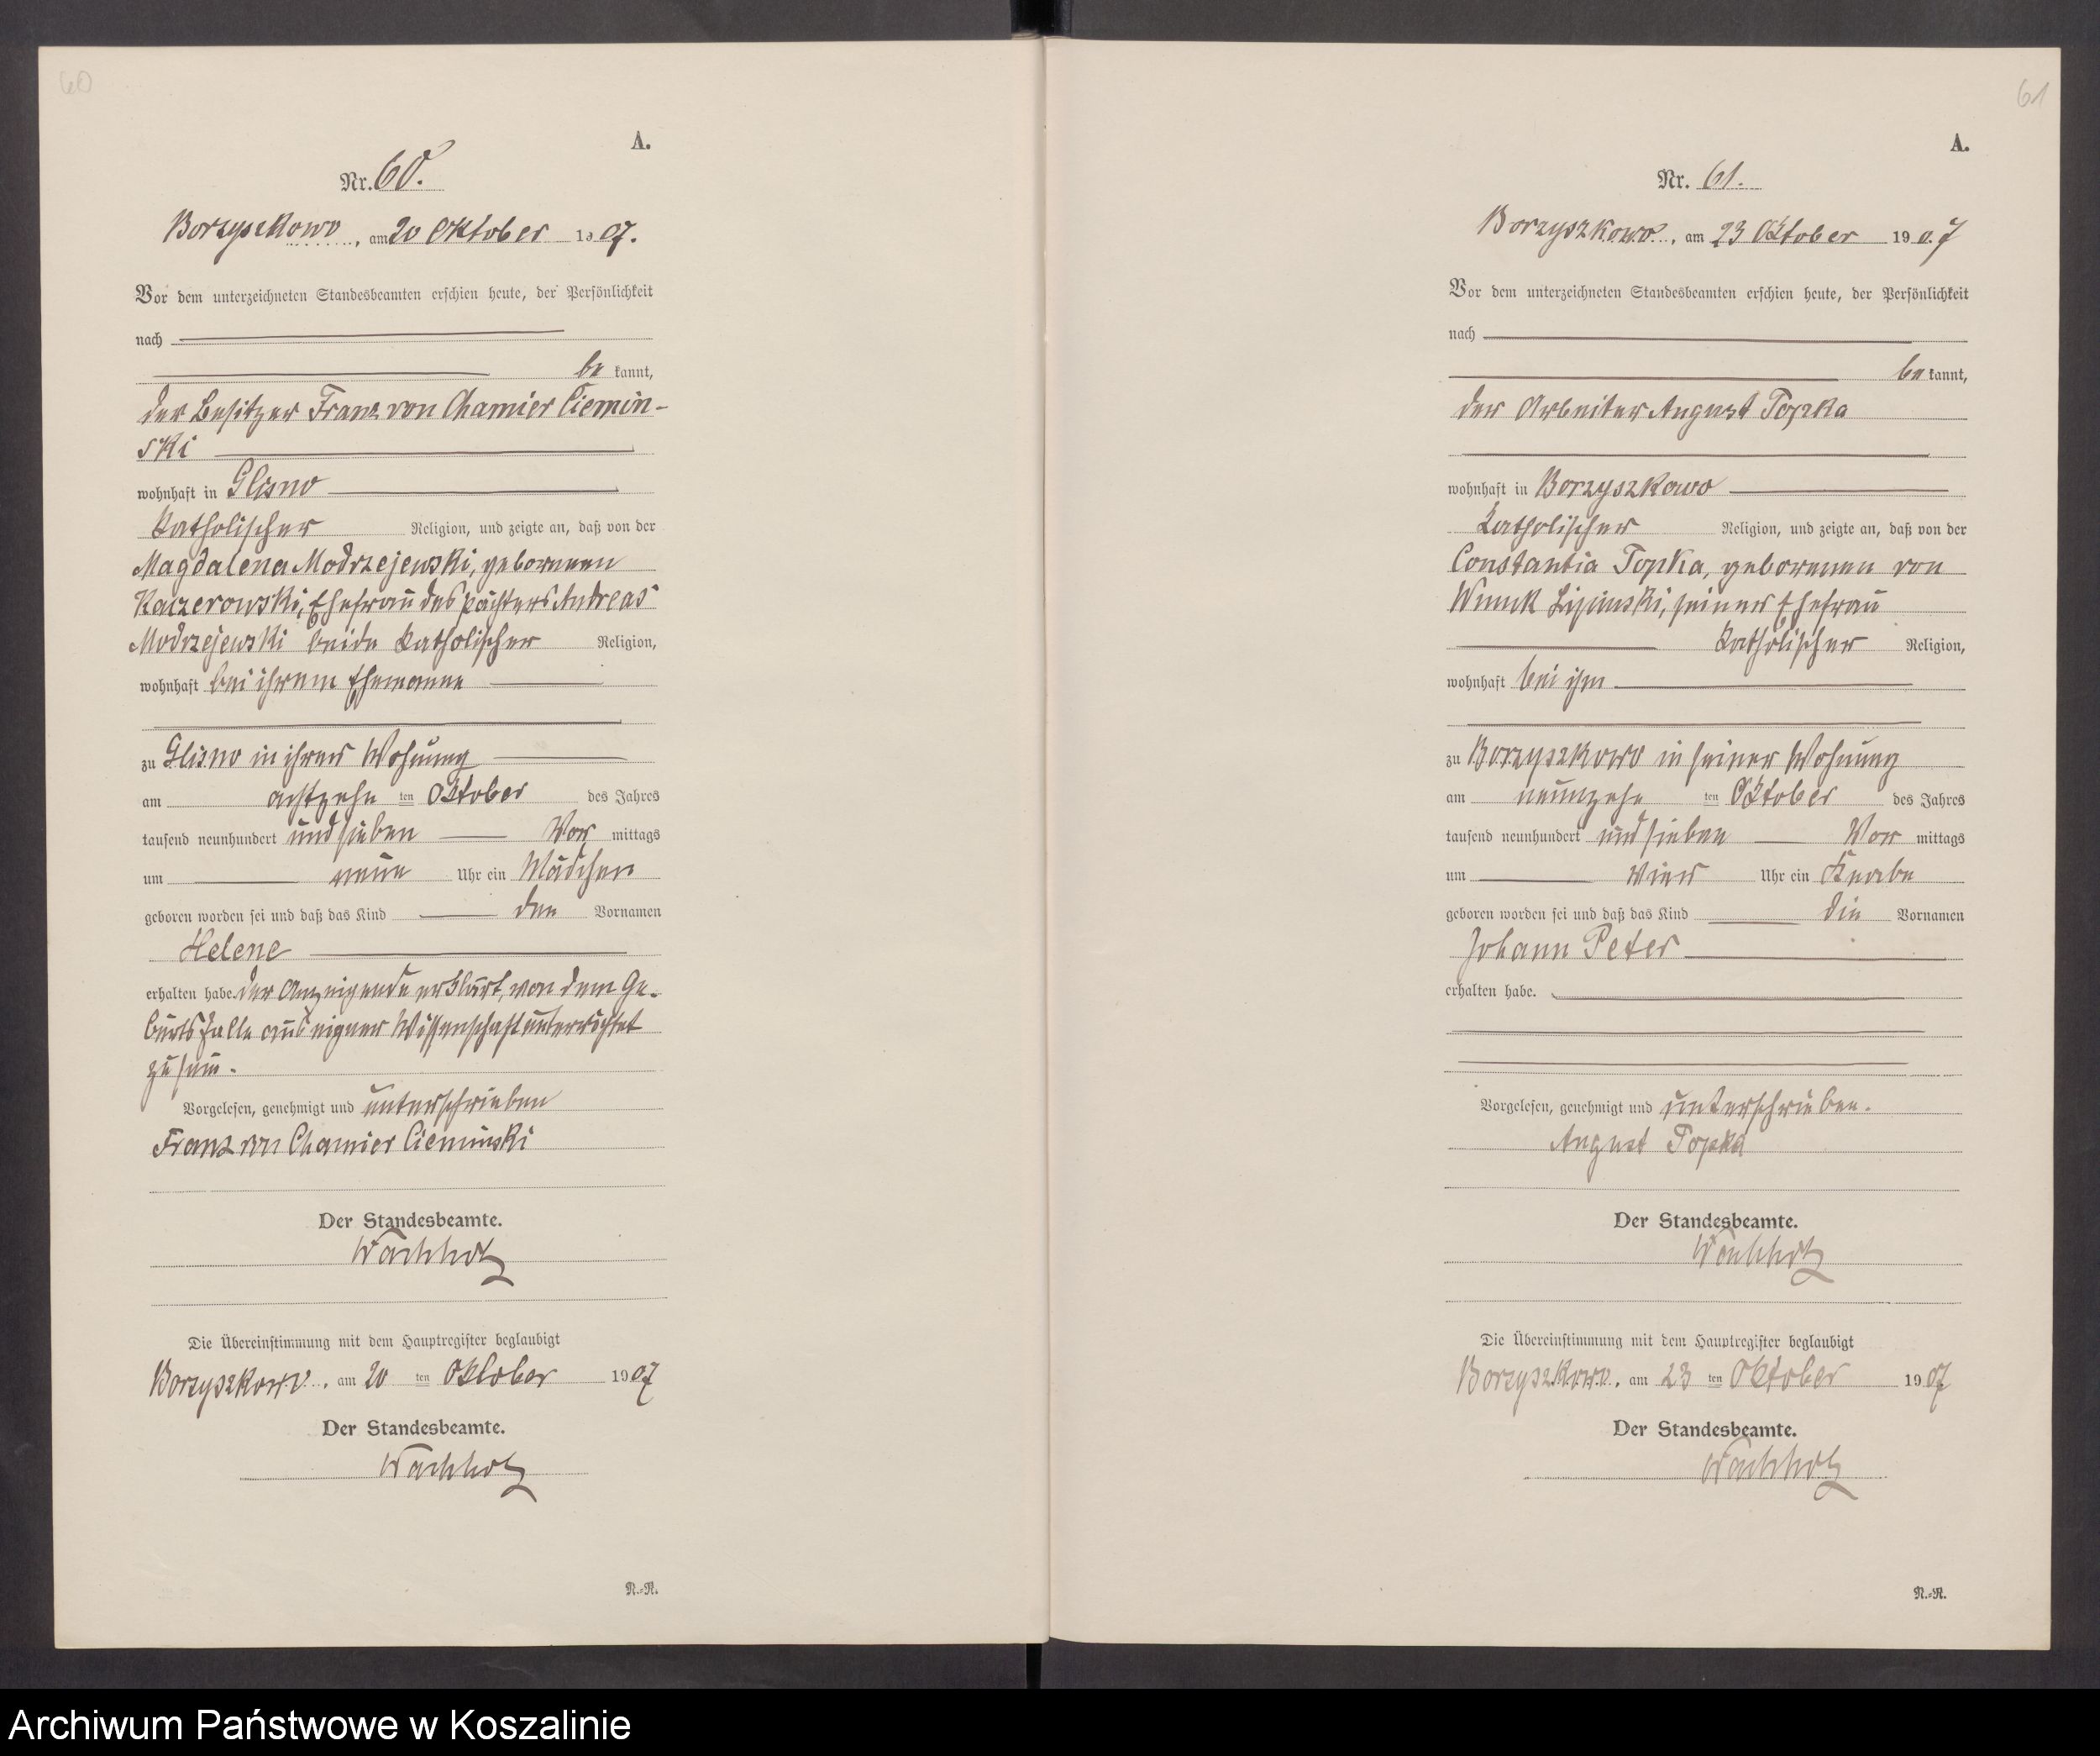 60
A.
Nr. 60.
Borzyszkowo, am 20 Oktober 1907.
Vor dem unterzeichneten Standesbeamten erschien heute, der Persönlichkeit
nach
be kannt,
der Besitzer Franz von Chamier Ciemin-
ski
wohnhaft in Glisno
katholischer Religion, und zeigte an, daß von der
Magdalena Modrzejewski, geborenen
Kaczerowski, Ehefrau des Pächters Andreas
Modrzejewski beide katholischer Religion,
wohnhaft bei ihrem Ehemanne
zu Glisno in ihrer Wohnung
am achtzehn ten Oktober des Jahres
tausend neunhundert und sieben Vor mittags
um neun Uhr ein Mädchen
geboren worden sei und daß das Kind den Vornamen
Helene
erhalten habe. Der Anzeigende erklärt, von dem Ge-
burtsfalle aus eigner Wissenschaft unterrichtet
zu sein.
Vorgelesen, genehmigt und unterschrieben
Franz von Chamier Cieminski
Der Standesbeamte.
Wachholz
Die Übereinstimmung mit dem Hauptregister beglaubigt
Borzyszkowo, am 20 ten Oktober 1907
Der Standesbeamte.
Wachholz
N.-R.
61
A.
Nr. 61.
Borzyszkowo, am 23 Oktober 1907
Vor dem unterzeichneten Standesbeamten erschien heute, der Persönlichkeit
nach
be kannt,
der Arbeiter August Topka
wohnhaft in Borzyszkowo
katholischer Religion, und zeigte an, daß von der
Constantia Topka, geborenen von
Wnuk Lipinski, seiner Ehefrau
katholischer Religion,
wohnhaft bei ihm
zu Borzyszkowo in seiner Wohnung
am neunzehn ten Oktober des Jahres
tausend neunhundert und sieben Vor mittags
um vier Uhr ein Knabe
geboren worden sei und daß das Kind die Vornamen
Johann Peter
erhalten habe.
Vorgelesen, genehmigt und unterschrieben.
August Topka
Der Standesbeamte.
Wachholz
Die Übereinstimmung mit dem Hauptregister beglaubigt
Borzyszkowo, am 23 ten Oktober 1907
Der Standesbeamte.
Wachholz
N.-R.
Archiwum Państwowe w Koszalinie